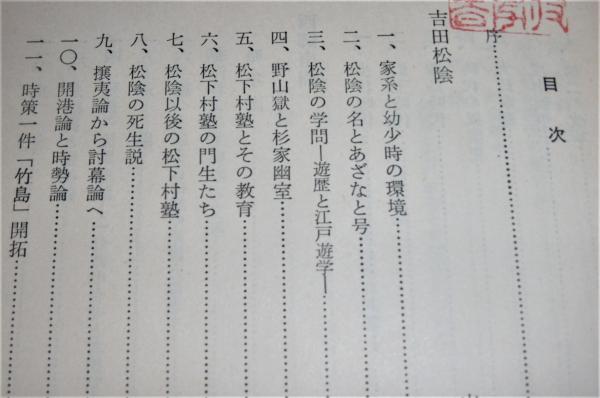 目次
序
吉田松陰
一、家系と幼少時の環境
二、松陰の名とあざなと号
三、松陰の学問―遊歴と江戸遊学―
四、野山獄と杉家幽室
五、松下村塾とその教育
六、松下村塾の門生たち
七、松陰以後の松下村塾
八、松陰の死生説
九、攘夷論から討幕論へ
一〇、開港論と時勢論
一一、時策一件「竹島」開拓